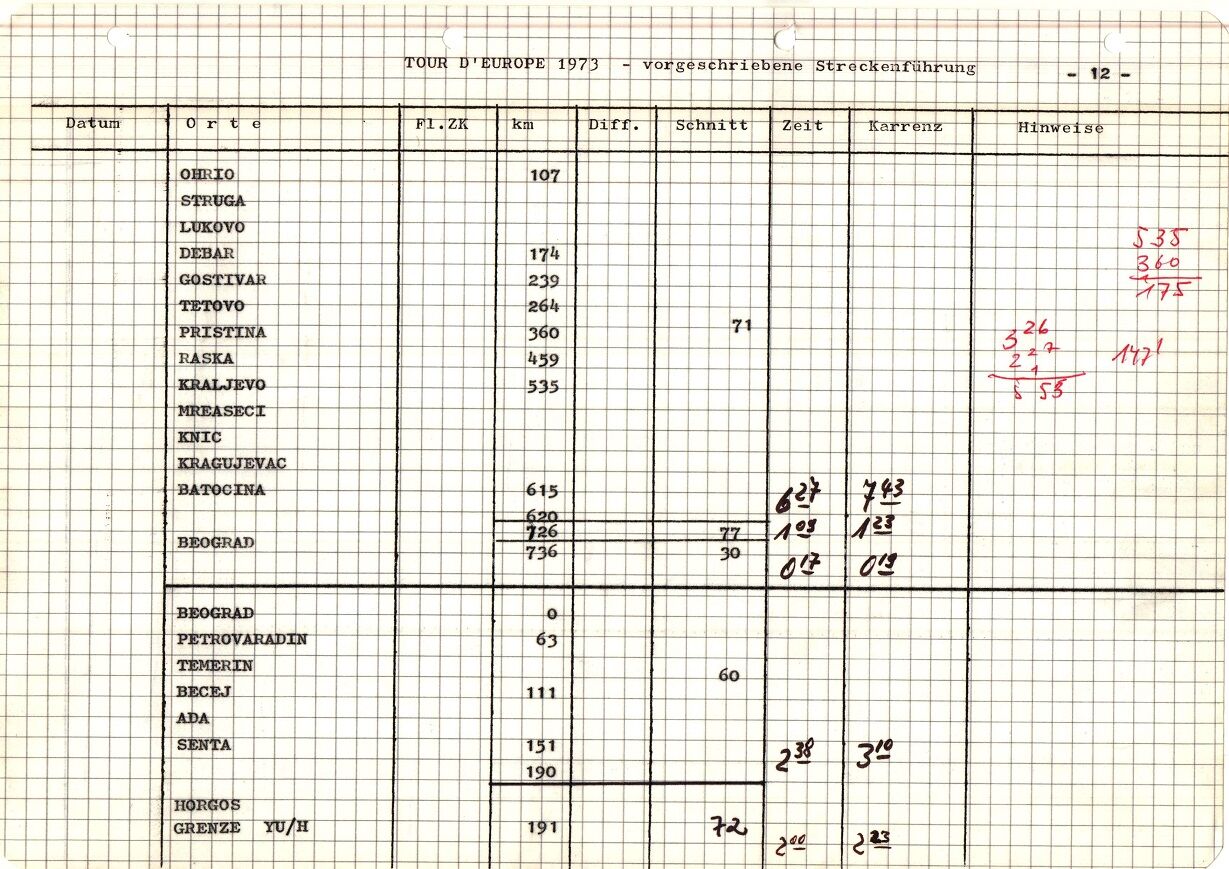 TOUR D'EUROPE 1973 - vorgeschriebene Streckenführung - 12 -
Datum Orte Fl.ZK km Diff. Schnitt Zeit Karrenz Hinweise
OHRIO 107
STRUGA
LUKOVO
535
DEBAR 174
360
GOSTIVAR 239
175
TETOVO 264
PRISTINA 360 71
3 26
RASKA 459
2 27 147'
1
KRALJEVO 535
5 53
MREASECI
KNIC
KRAGUJEVAC
BATOCINA 615 6 27 7 43
620
726 77 1 09 1 23
BEOGRAD
736 30 0 17 0 19
BEOGRAD 0
PETROVARADIN 63
TEMERIN
60
BECEJ 111
ADA
SENTA 151 2 38 3 10
190
HORGOS
GRENZE YU/H 191 72
2 00 2 23